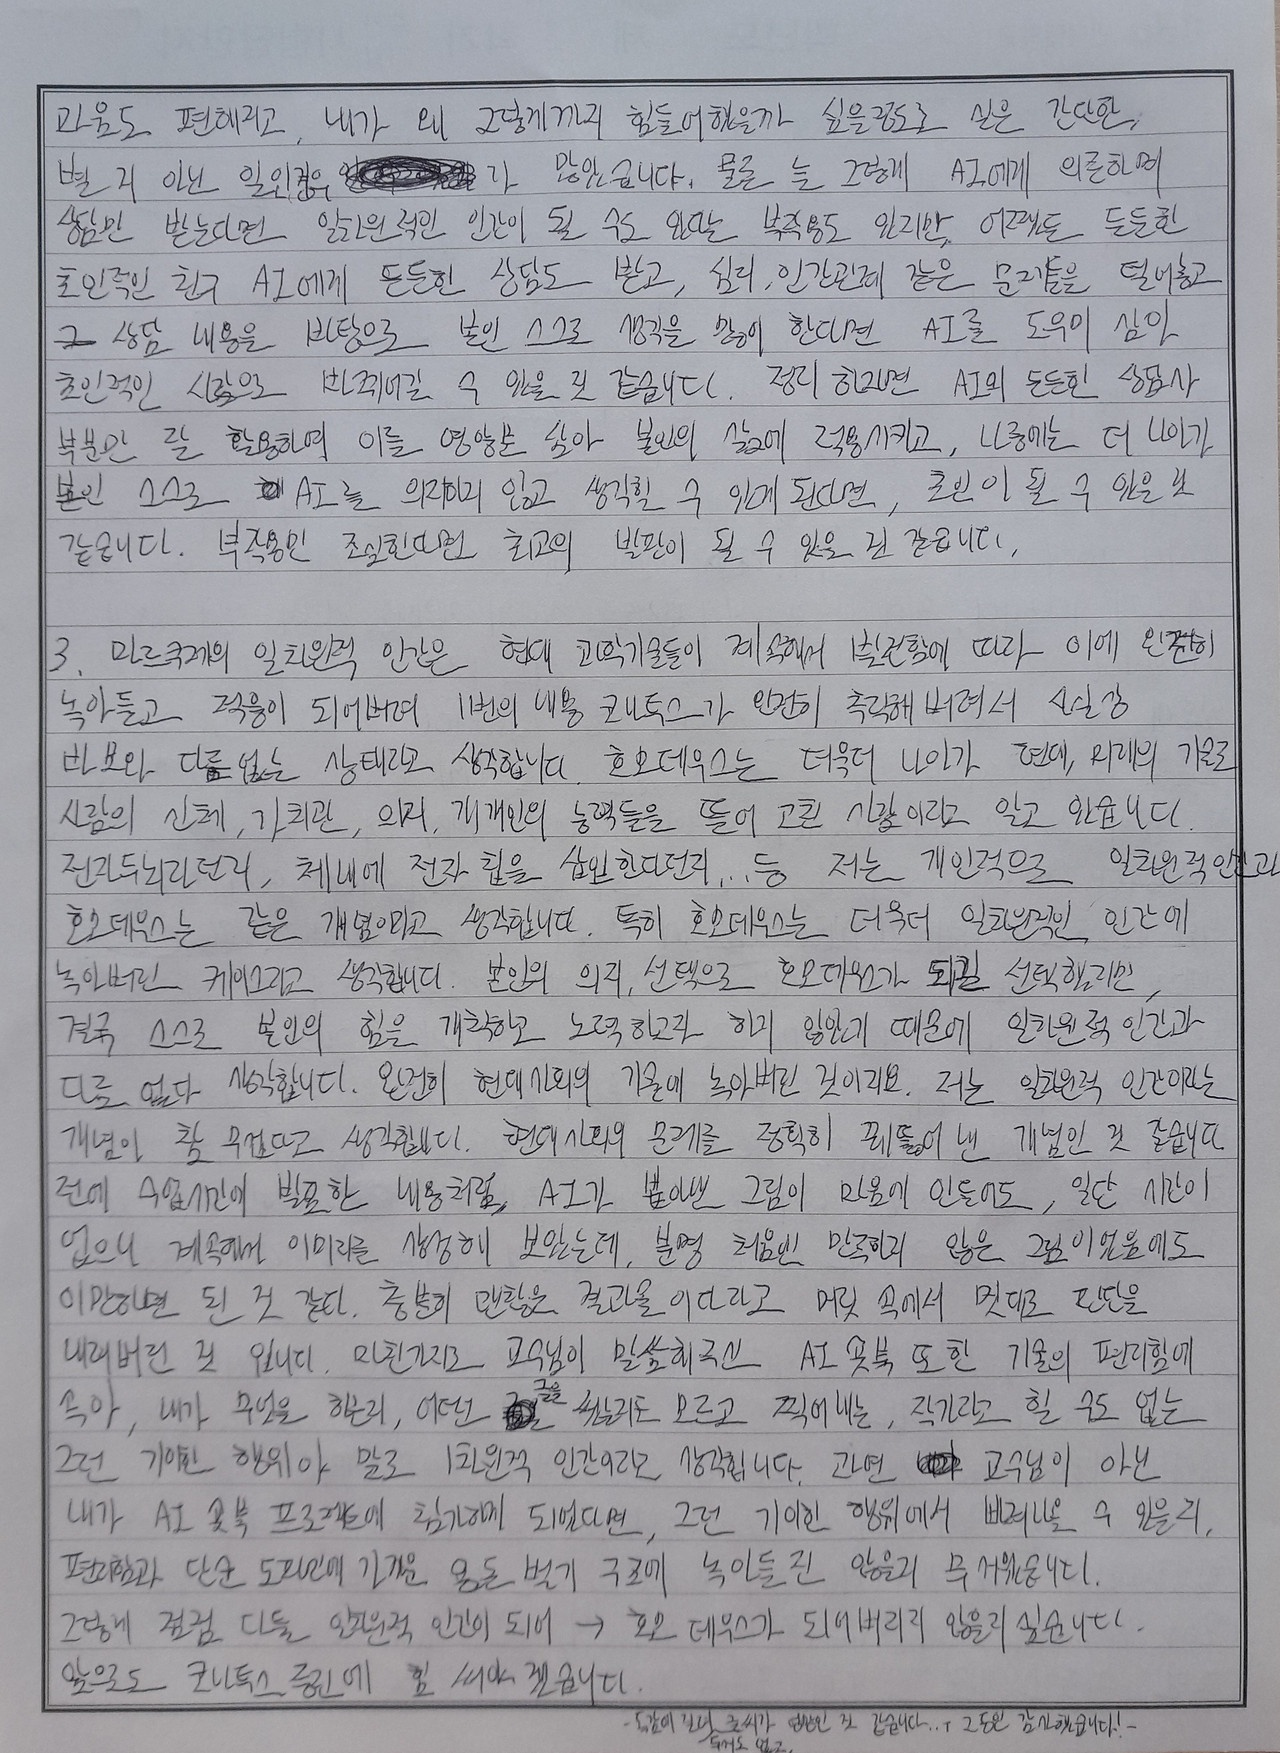 마음도 편해지고, 내가 왜 그렇게까지 힘들어했을까 싶을정도로 실은 간단한,
별 거 아닌 일인경우가 많았습니다. 물론 늘 그렇게 AI에게 의존하며
상담만 받는다면 일차원적인 인간이 될 수도 있다는 부작용도 있지만, 어쨌든 든든한
초인적인 친구 AI에게 든든한 상담도 받고, 심리, 인간관계 같은 문제들을 털어놓고
그 상담 내용을 바탕으로 본인 스스로 생각을 많이 한다면 AI를 도우미 삼아
초인적인 사람으로 바뀌어질 수 있을 것 같습니다. 정리 하자면 AI의 든든한 상담사
부분만 잘 활용하며 이를 영양분 삼아 본인의 삶에 적용시키고, 나중에는 더 나아가
본인 스스로 AI를 의지하지 않고 생각할 수 있게 된다면, 초인이 될 수 있을 것
같습니다. 부작용만 조심한다면 최고의 발판이 될 수 있을 것 같습니다.
3. 마르쿠제의 일차원적 인간은 현대 과학기술들이 계속해서 발전함에 따라 이에 완전히
녹아들고 적응이 되어버려 1번의 내용 코나투스가 완전히 추락해 버려서 사실상
바보와 다름 없는 상태라고 생각합니다. 호모데우스는 더욱더 나아가 현대, 미래의 기술로
사람의 신체, 가치관, 의지, 개개인의 능력들을 뜯어 고친 사람이라고 알고 있습니다.
전자두뇌라던지, 체내에 전자 칩을 삽입한다던지... 등 저는 개인적으로 일차원적인간과
호모데우스는 같은 개념이라고 생각합니다. 특히 호모데우스는 더욱더 일차원적인 인간에
녹아버린 케이스라고 생각합니다. 본인의 의지, 선택으로 호모데우스가 되길 선택했지만,
결국 스스로 본인의 힘을 개척하고 노력하고자 하지 않았기 때문에 일차원적 인간과
다를 없다 생각합니다. 완전히 현대사회의 기술에 녹아버린 것이지요. 저는 일차원적 인간이라는
개념이 참 무섭다고 생각합니다. 현대사회의 문제를 정확히 꿰뚫어 낸 개념인 것 같습니다
전에 수업시간에 발표한 내용처럼, AI가 뽑아낸 그림이 마음에 안들어도, 일단 시간이
없으니 계속해서 이미지를 생성해 보았는데, 분명 처음엔 만족하지 않은 그림이었음에도
이만하면 된 것 같다. 충분히 괜찮은 결과물이다라고 머릿 속에서 멋대로 판단을
내려버린 것 입니다. 마찬가지로 교수님이 말씀해주신 AI 곳북 또한 기술의 편리함에
속아, 내가 무엇을 하는지, 어떤 글을 써는지도 모르고 찍어내는, 작가라고 할 수도 없는
그런 기이한 행위야 말로 1차원적 인간이라고 생각합니다. 과연 교수님이 아닌
내가 AI 곳북 프로젝트에 참가하게 되었다면, 그런 기이한 행위에서 벗어나올 수 있을지,
편리함과 단순 도파민에 가까운 용돈 벌기 구조에 녹아들진 않을지 무서웠습니다.
그렇게 점점 다들 일차원적 인간이 되어 → 호모 데우스가 되어버리지 않을지 싶습니다.
앞으로도 코나투스 증진에 힘 써야 겠습니다.
글씨가 엉망인 것 같습니다..ㅜ 그동안 감사했습니다!-